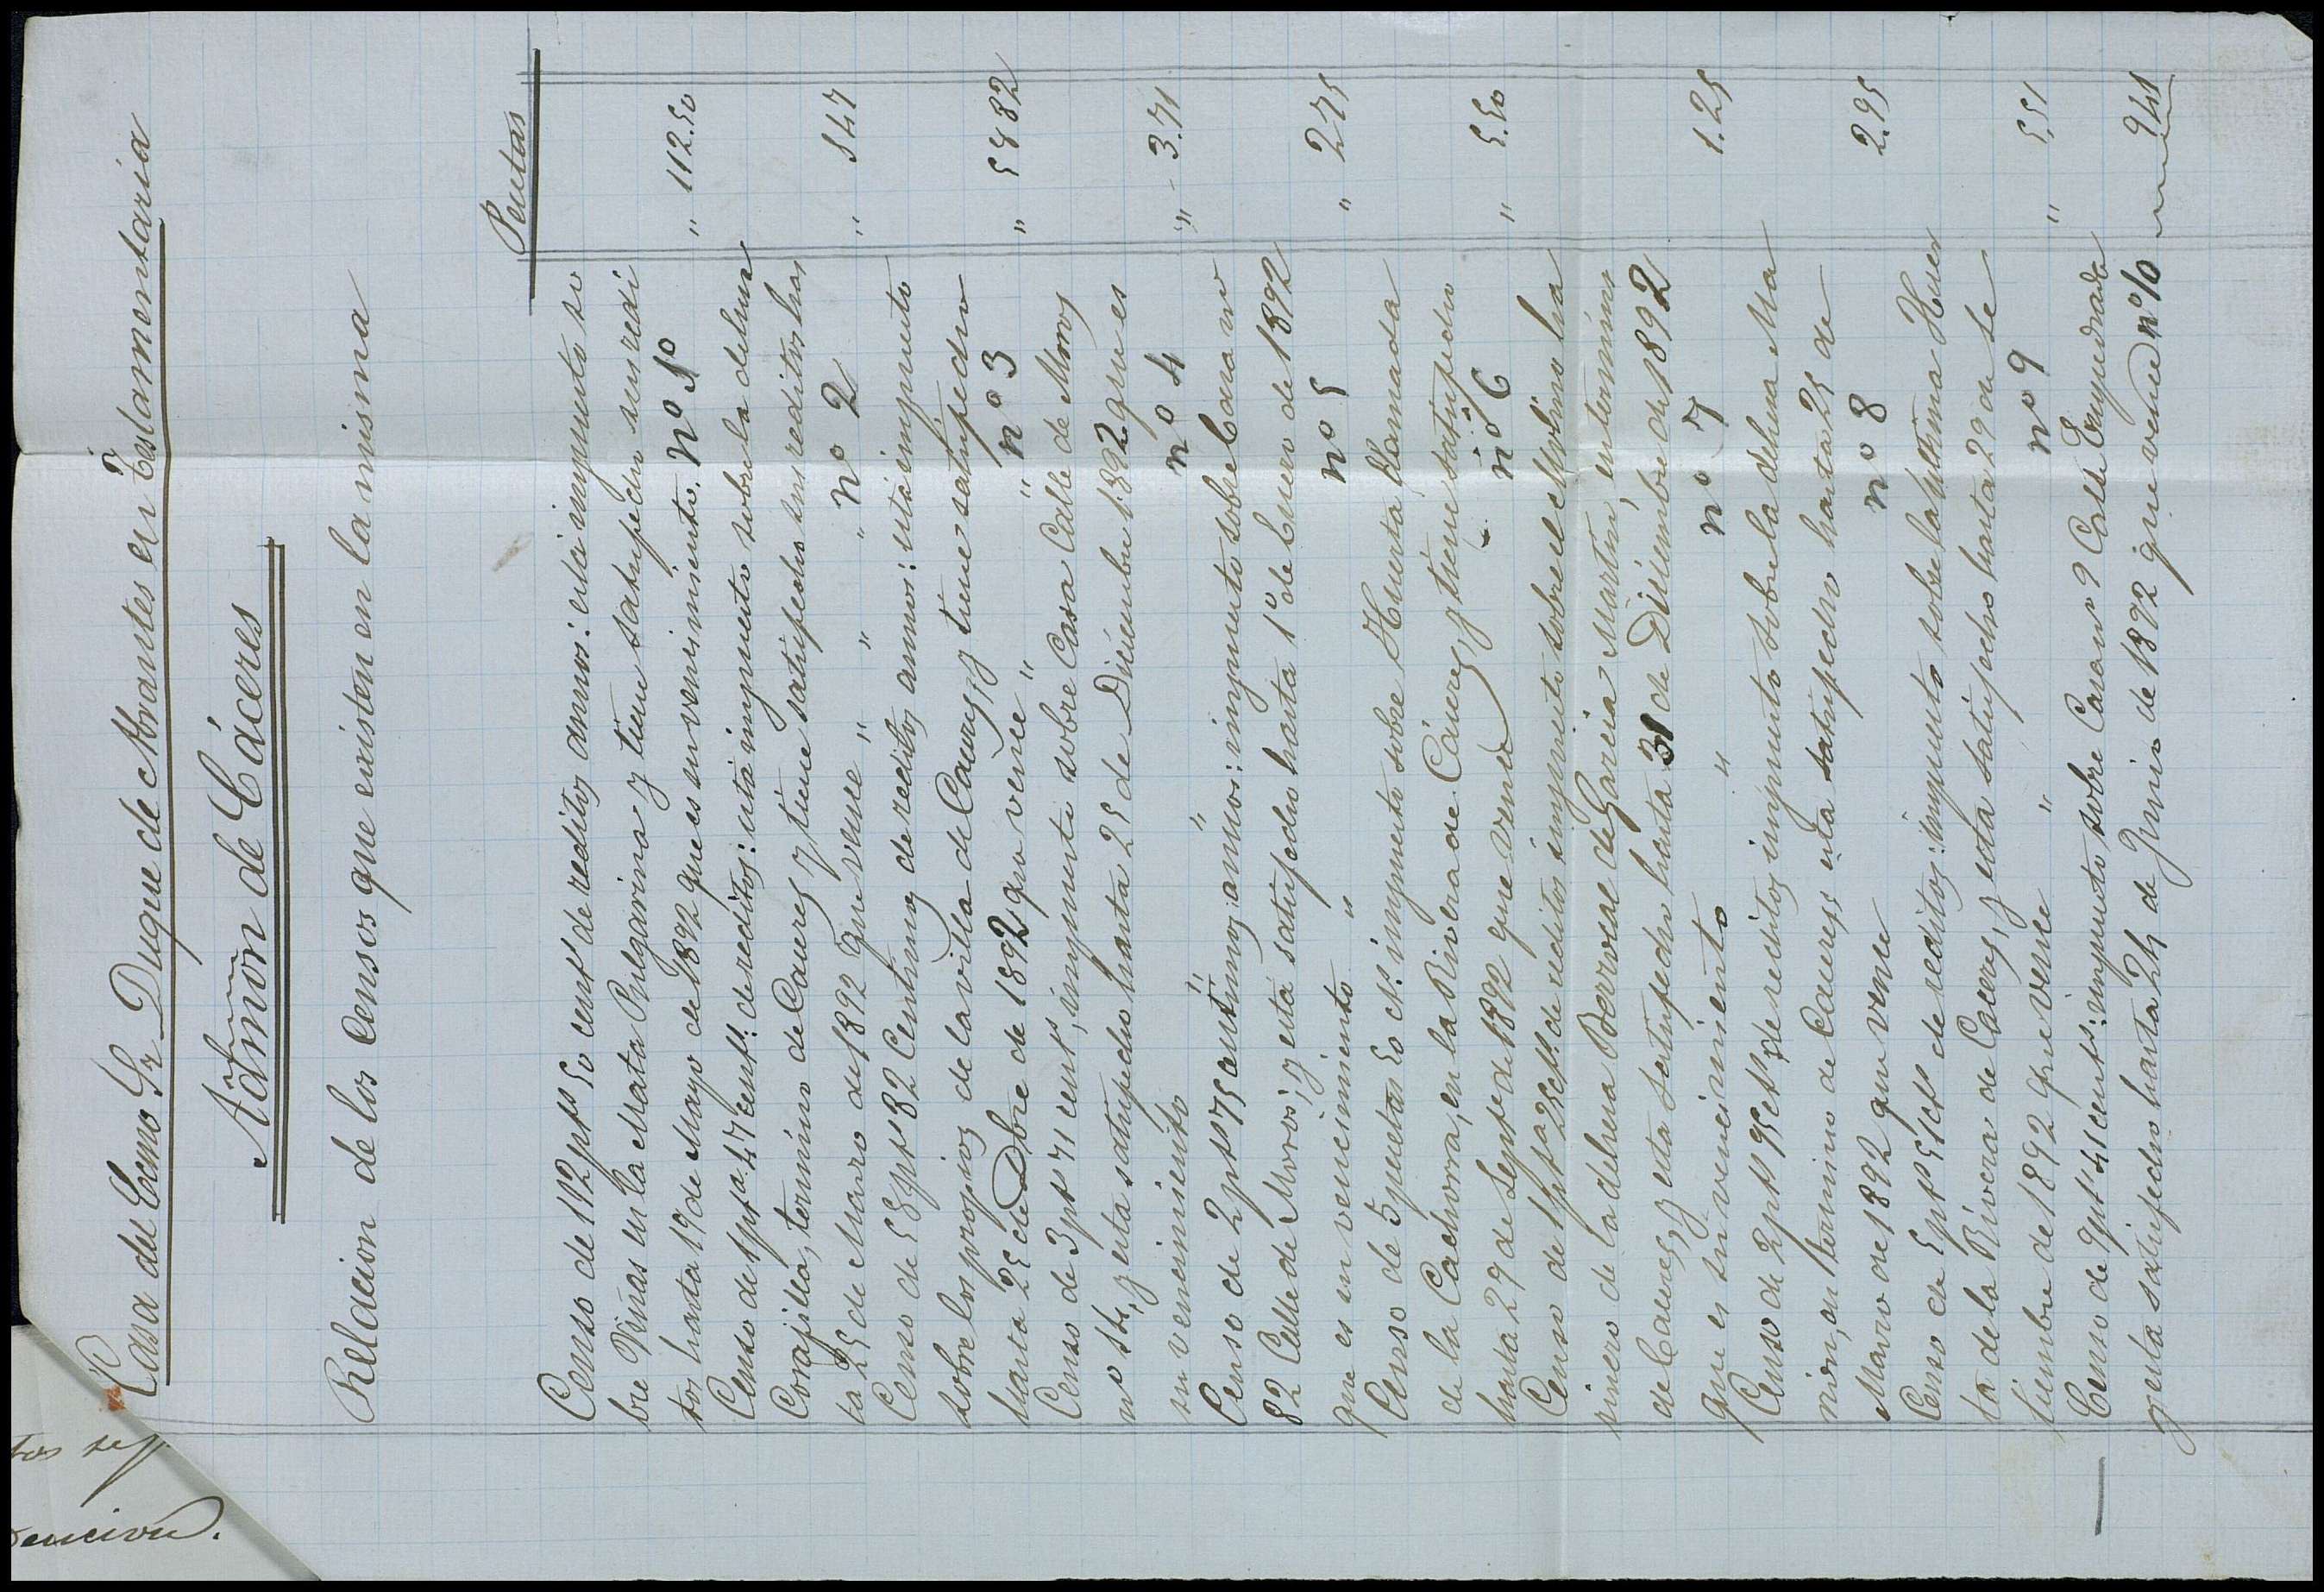 Casa del Ecsmo Sr Duque de Abrantes en Testamentaria
Admon de Cáceres
Relacion de los Censos que existen en la misma
Pesetas
Censo de 112 pts 50 cents de reditos annos: está impuesto so
bre Viñas en la Mata Pulgarina y tiene satisfecho sus redi
tos hasta 19 de Mayo de 1892 que es su vencimiento. nº 1º " 112.50
Censo de 1 pta. 47 cents: de reditos: está impuesto sobre la dehesa
Corajilla, termino de Caceres y tiene satisfechos sus reditos has
ta 25 de Marzo de 1892 que vence " " " nº 2 " 1 47
Censo de 58 pts 82 Centimos de reditos annos: está impuesto
sobre los propios de la villa de Caceres, y tiene satisfecho
hasta 25 de Dbre de 1892, que vence " " nº 3 " 58 82
Censo de 3 pts 71 cents, impuesto sobre Casa Calle de Moros
nº 14, y esta satisfecho hasta 25 de Diciembre 1.892 que es
su vencimiento " " nº 4 " 3.71
Censo de 2 pts 75 centimos annos: impuesto sobre Casa nº
82 Calle de Moros; y está satisfecho hasta 1º de Enero de 1892
que es su vencimiento " nº 5 " 2 75
Censo de 5 pesetas 50 cts. impuesto sobre Huerta llamada
de la Cachorra, en la Rivera de Cáceres, y tiene satisfecho
hasta 29 de Septe de 1892 que vence nº 6 " 5.50
Censo de 1 pta 25 cts. de reditos impuesto sobre el Molino ha
rinero de la dehesa Borrocal de Garcia Martin, en termino
de Caceres, y esta satisfecho hasta 31 de Diciembre de 1892
que es su vencimiento " nº 7 1.25
Censo de 2 pts 95 cts de reditos impuesto sobre la dehesa Ma
rion, en termino de Caceres y esta satisfecho hasta 25 de
Marzo de 1892 que vence nº 8 2.95
Censo de 5 pts 51 cts de reditos: impuesto sobre la ultima Huer
ta de la Rivera de Caceres, y esta satisfecho hasta 29 de Se
tiembre de 1892 que vence " nº 9 " 5,51
Censo de 9 pts 41 cents: impuesto sobre Casa nº 9 Calle Empedrada
y esta satisfecho hasta 24 de Junio de 1892 que vence nº 10 9,41
tos